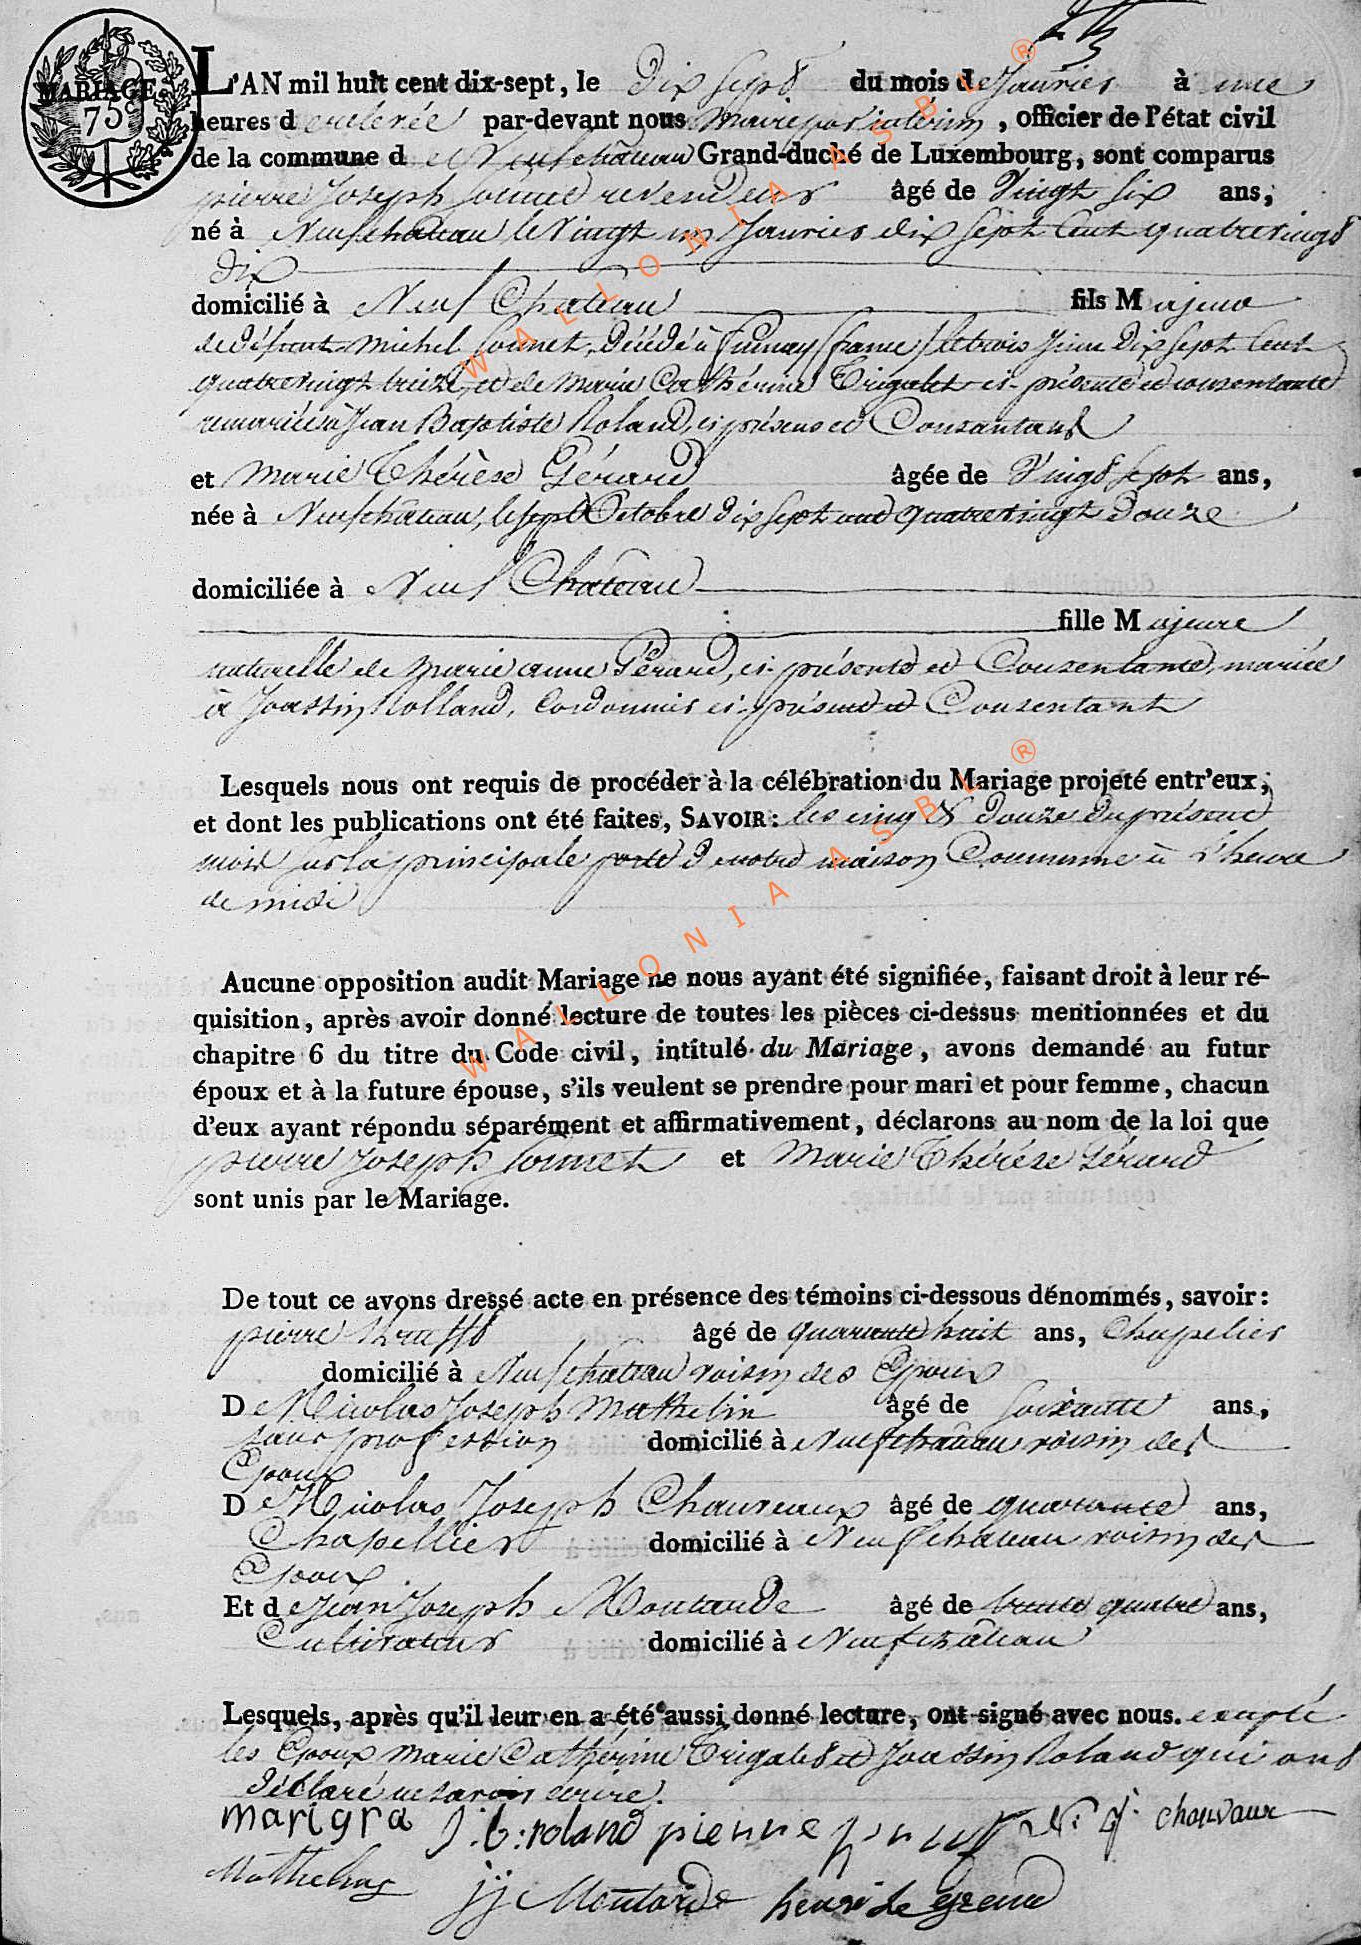 MARIAGE.
75c
L'AN mil huit cent dix-sept, le dix sept du mois de Janvier à une
heures d' par-devant nous Maire par interim, officier de l'état civil
de la commune de Neufchateau Grand-duché de Luxembourg, sont comparus
pierre Joseph Sonnet revendeur âgé de Vingt six ans,
né à Neufchateau le Vingt un Janvier dix Sept Cent quatrevingt
dix
domicilié à Neuf Chateau fils Majeur
de défunt Michel Sonnet, décédé à Fumay (france) le trois Juin Dix Sept Cent
quatrevingt treize, et de Marie Cathérine Trigalet ci-présente et consentante
remariée à Jean Baptiste Roland, ci présent et Consantant
et Marie Thérèse Gérard âgée de Vingt sept ans,
née à Neufchateau, le sept Octobre dix sept cent quatrevingt Douze
domiciliée à Neuf Chateau
fille Majeure
naturelle de Marie anne Gérard, ci-présente et Consentante, mariée
à Joassin Rolland, Cordonnier ci-présent et Consentant
Lesquels nous ont requis de procéder à la célébration du Mariage projeté entr'eux,
et dont les publications ont été faites, SAVOIR: les cinq & Douze du présent
mois sur la principale porte d notre maison Commune à l'heure
de midi
Aucune opposition audit Mariage ne nous ayant été signifiée, faisant droit à leur ré-
quisition, après avoir donné lecture de toutes les pièces ci-dessus mentionnées et du
chapitre 6 du titre du Code civil, intitulé du Mariage, avons demandé au futur
époux et à la future épouse, s'ils veulent se prendre pour mari et pour femme, chacun
d'eux ayant répondu séparément et affirmativement, déclarons au nom de la loi que
pierre Joseph Sonnet et Marie Thérèse Gérard
sont unis par le Mariage.
De tout ce avons dressé acte en présence des témoins ci-dessous dénommés, savoir:
pierre âgé de quarante huit ans, Chapelier
domicilié à Neufchateau voisin des Epoux
De Nicolas Joseph Mathelin âgé de soixante ans,
sans profession domicilié à Neufchâteau voisin des
Epoux
De Nicolas Joseph Chauveaux âgé de quarante ans,
Chapellier domicilié à Neufchateau voisin des
Epoux
Et de Jean Joseph Moutarde âgé de trente quatre ans,
Cultivateur domicilié à Neufchâteau
Lesquels, après qu'il leur en a été aussi donné lecture, ont signé avec nous. excepté
les Epoux, Marie Cathérine Trigalet et Joassin Roland qui ont
déclaré ne savoir écrire.
marigra J: b: roland pierre N: J: chauvaux
Mathelin jj Moutarde henri Le grand
WALLONIA ASBL ®
WALLONIA ASBL ®